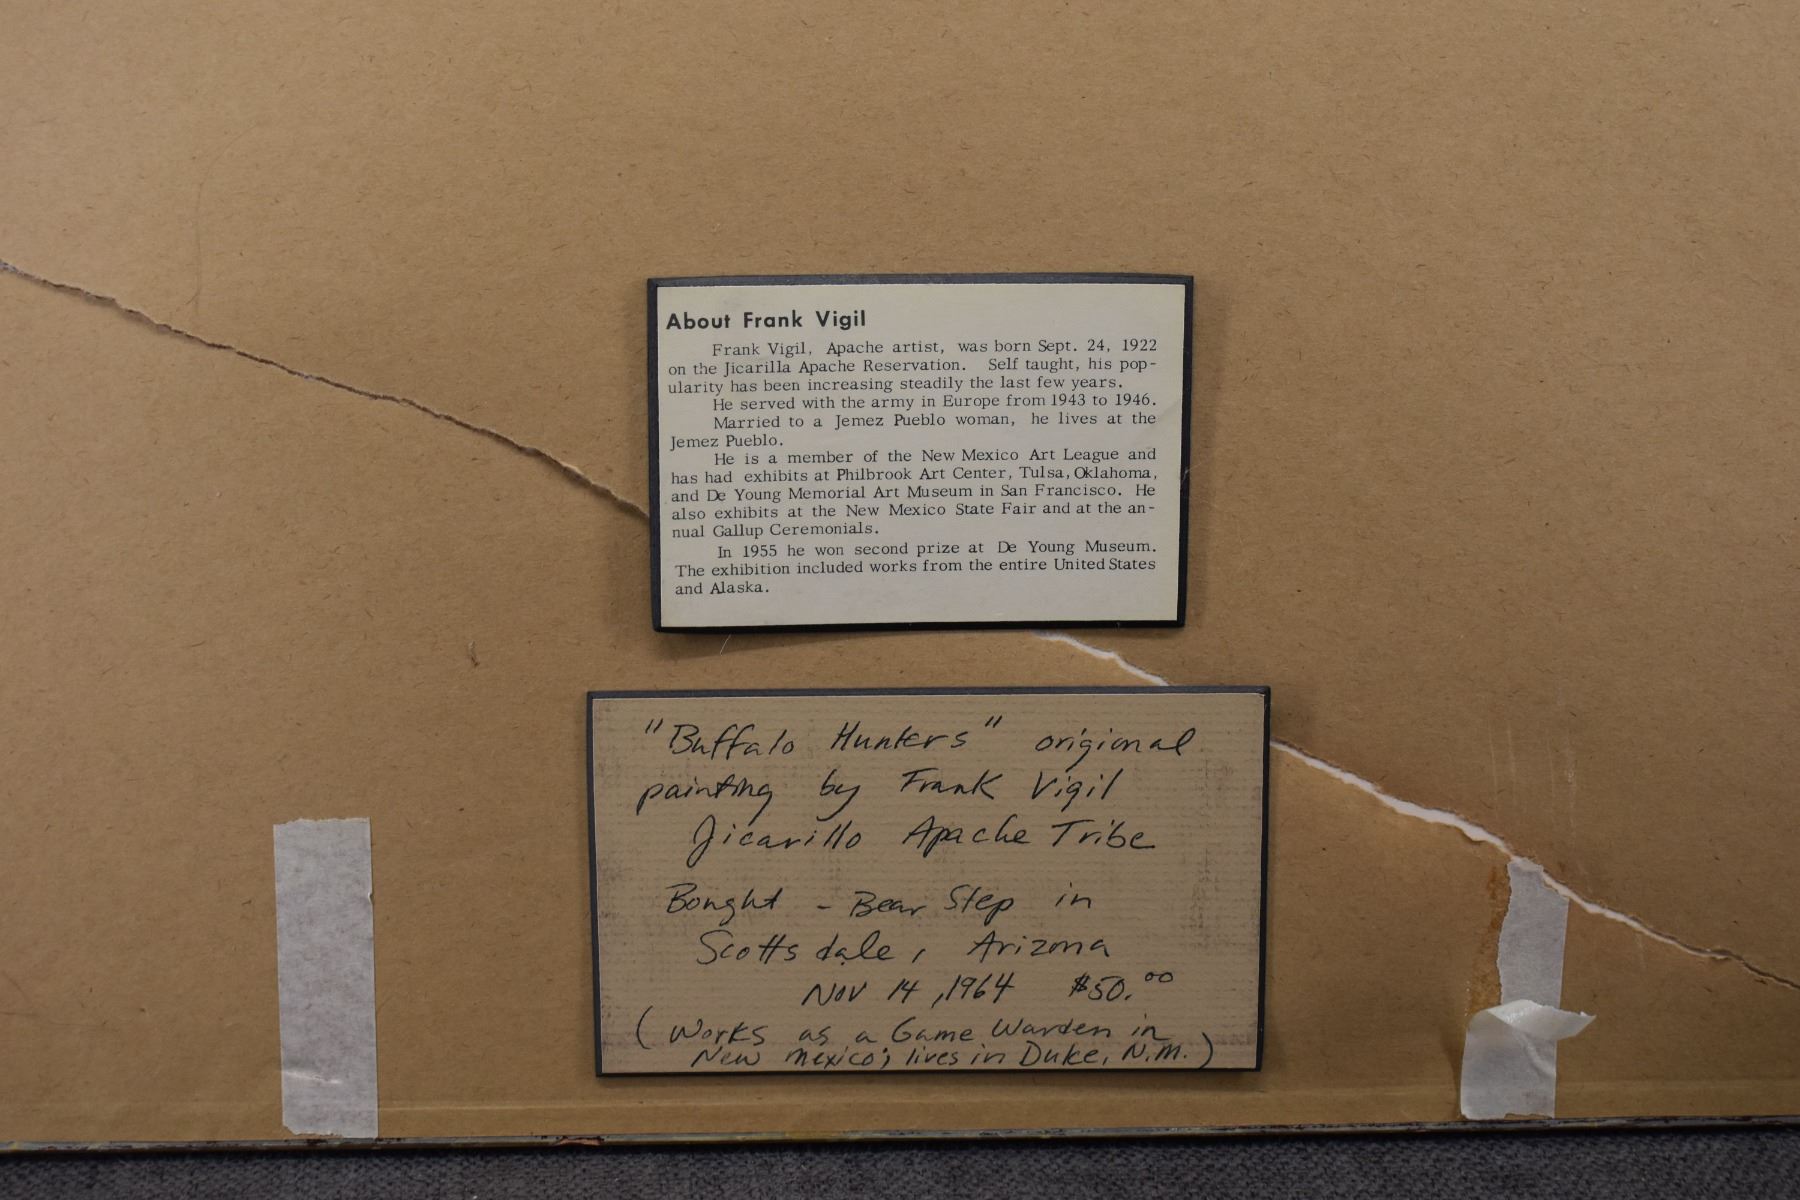 About Frank Vigil
Frank Vigil, Apache artist, was born Sept. 24, 1922
on the Jicarilla Apache Reservation. Self taught, his pop-
ularity has been increasing steadily the last few years.
He served with the army in Europe from 1943 to 1946.
Married to a Jemez Pueblo woman, he lives at the
Jemez Pueblo.
He is a member of the New Mexico Art League and
has had exhibits at Philbrook Art Center, Tulsa, Oklahoma,
and De Young Memorial Art Museum in San Francisco. He
also exhibits at the New Mexico State Fair and at the an-
nual Gallup Ceremonials.
In 1955 he won second prize at De Young Museum.
The exhibition included works from the entire United States
and Alaska.
"Buffalo Hunters" origional
painting by Frank Vigil
Jicarillo Apache Tribe
Bought - Bear Step in
Scottsdale, Arizona
Nov 14, 1964 $50.00
(Works as a Game Warden in
New Mexico; lives in Duke, N.M.)